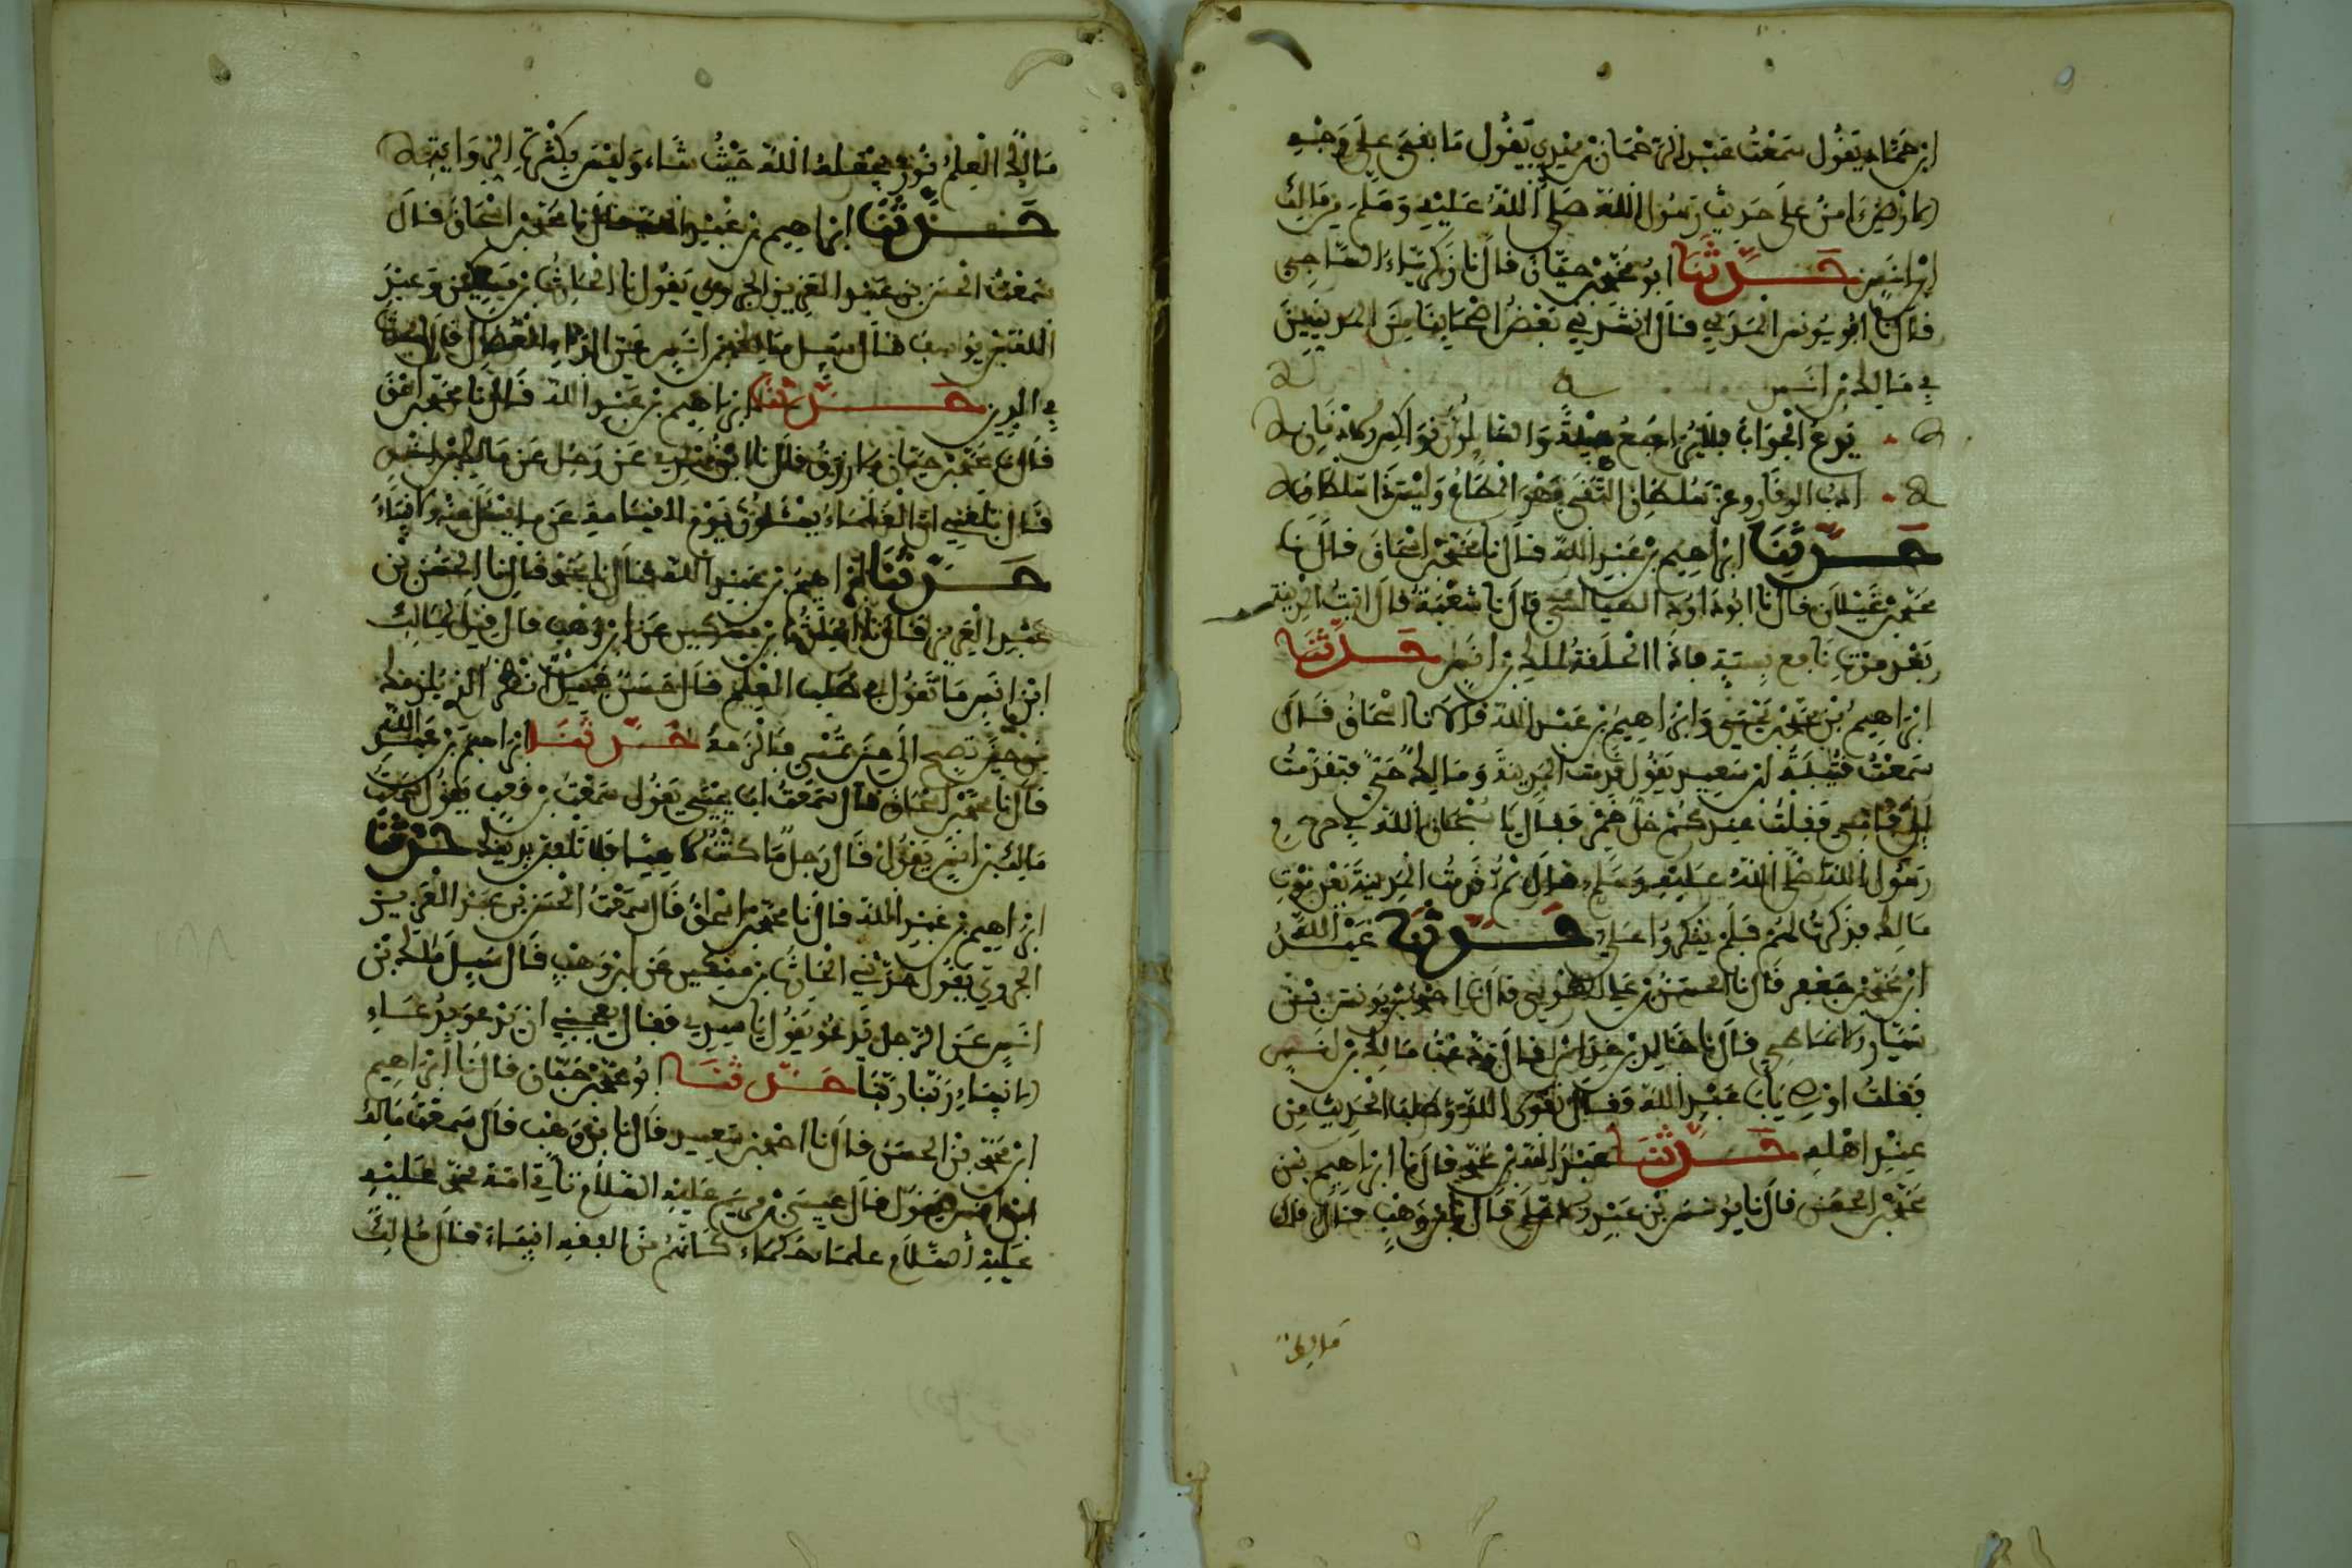 ابن حماد يقول سمعت عبد الرحمان بن مهدي يقول ما بقي على وجه
الارض ءامن على حديث رسول الله صلى الله عليه وسلم من مالك
ابن انس حدثنا ابو محمد حيان قال نا زكرياء الساجي
قال نا ابو يونس المدني قال انشدني بعض اصحابنا من المدنيين
في مالك بن انس
يدع الجواب فلا يراجع هيبة والسائلون نواكس الاذقان
ادب الوقار وعز سلطان التقى فهو المطاع وليس ذا سلطان
حدثنا ابراهيم بن عبد الله قال نا محمد بن اسحاق قال نا
محمود بن غيلان قال نا ابو داوود الطيالسي قال نا شعبة قال اتيت المدينة
بعد موت نافع بسنة فاذا الحلقة لملك بن انس حدثنا
ابراهيم بن محمد بن يحيى وابراهيم بن عبد الله قالا نا اسحاق قال
سمعت قتيبة بن سعيد يقول قدمت المدينة ومالك حي فتقدمت
الى فامي فقلت عندكم خل خمر فقال يا سبحان الله في حرم
رسول الله صلى الله عليه وسلم قال ثم قدمت المدينة بعد موت
مالك فذكرت لهم فلم ينكروا علي حدثنا عبد الله
ابن محمد بن جعفر قال نا الحسن بن علي الطوسي قال نا احمد بن يونس بن
سيار قال نا خالد بن خداش قال ودعت مالك بن انس
فقلت اوصني يابا عبد الله فقال تقوى الله وطلب الحديث من
عند اهله حدثنا عبد الله بن محمد قال نا ابراهيم بن
محمد بن الحسن قال نا يونس بن عبد الاعلى قال نا بن وهب قال قال
مالك
مالك العلم نور يجعله الله حيث شاء وليس بكثرة الرواية
حدثنا ابراهيم بن عبد الله قال نا محمد بن اسحاق قال
سمعت الحسن بن عبد العزيز الجروي يقول نا الحارث بن مسكين وعبد
الله بن يوسف قال سئل مالك بن انس عن الداء العضال قال الحدث
في الدين حدثنا ابراهيم بن عبد الله قال نا محمد بن اسحق
قال بلغني ان العلماء يسئلون يوم القيامة عن ما يسئل عنه الانبياء
حدثنا ابراهيم بن عبد الله قال نا محمد قال نا الحسن بن
عبد العزيز قال نا الحارث بن مسكين عن ابن وهب قال قيل لمالك
ابن انس ما تقول في طلب العلم قال حسن جميل انظر الذي يلزمك
من حين تصبح الى حين تمسي فالزمه حدثنا ابراهيم بن عبد الله
قال نا محمد بن اسحاق قال سمعت ابا يحيى يقول سمعت بن وهب يقول سمعت
مالك بن انس يقول قال رجل ما كنت لاعبا فلا تلعبن بدينك حدثنا
ابراهيم بن عبد الله قال نا محمد بن اسحاق قال سمعت الحسن بن عبد العزيز
الجروي يقول حدثني الحارث بن مسكين عن ابن وهب قال سئل مالك بن
انس عن الرجل يدعو يقول يا سيدي فقال يعجبني ان يدعو بدعاء
الانبياء ربنا ربنا حدثنا ابو محمد بن حيان قال نا ابراهيم
ابن محمد بن الحسن قال نا احمد بن سعيد قال نا بن وهب قال سمعت مالك
ابن انس يقول قال عيسى بن مريم عليه السلام تاتي امة محمد عليه
عليه السلام علماء حكماء كانهم من الفقه انبياء قال مالك